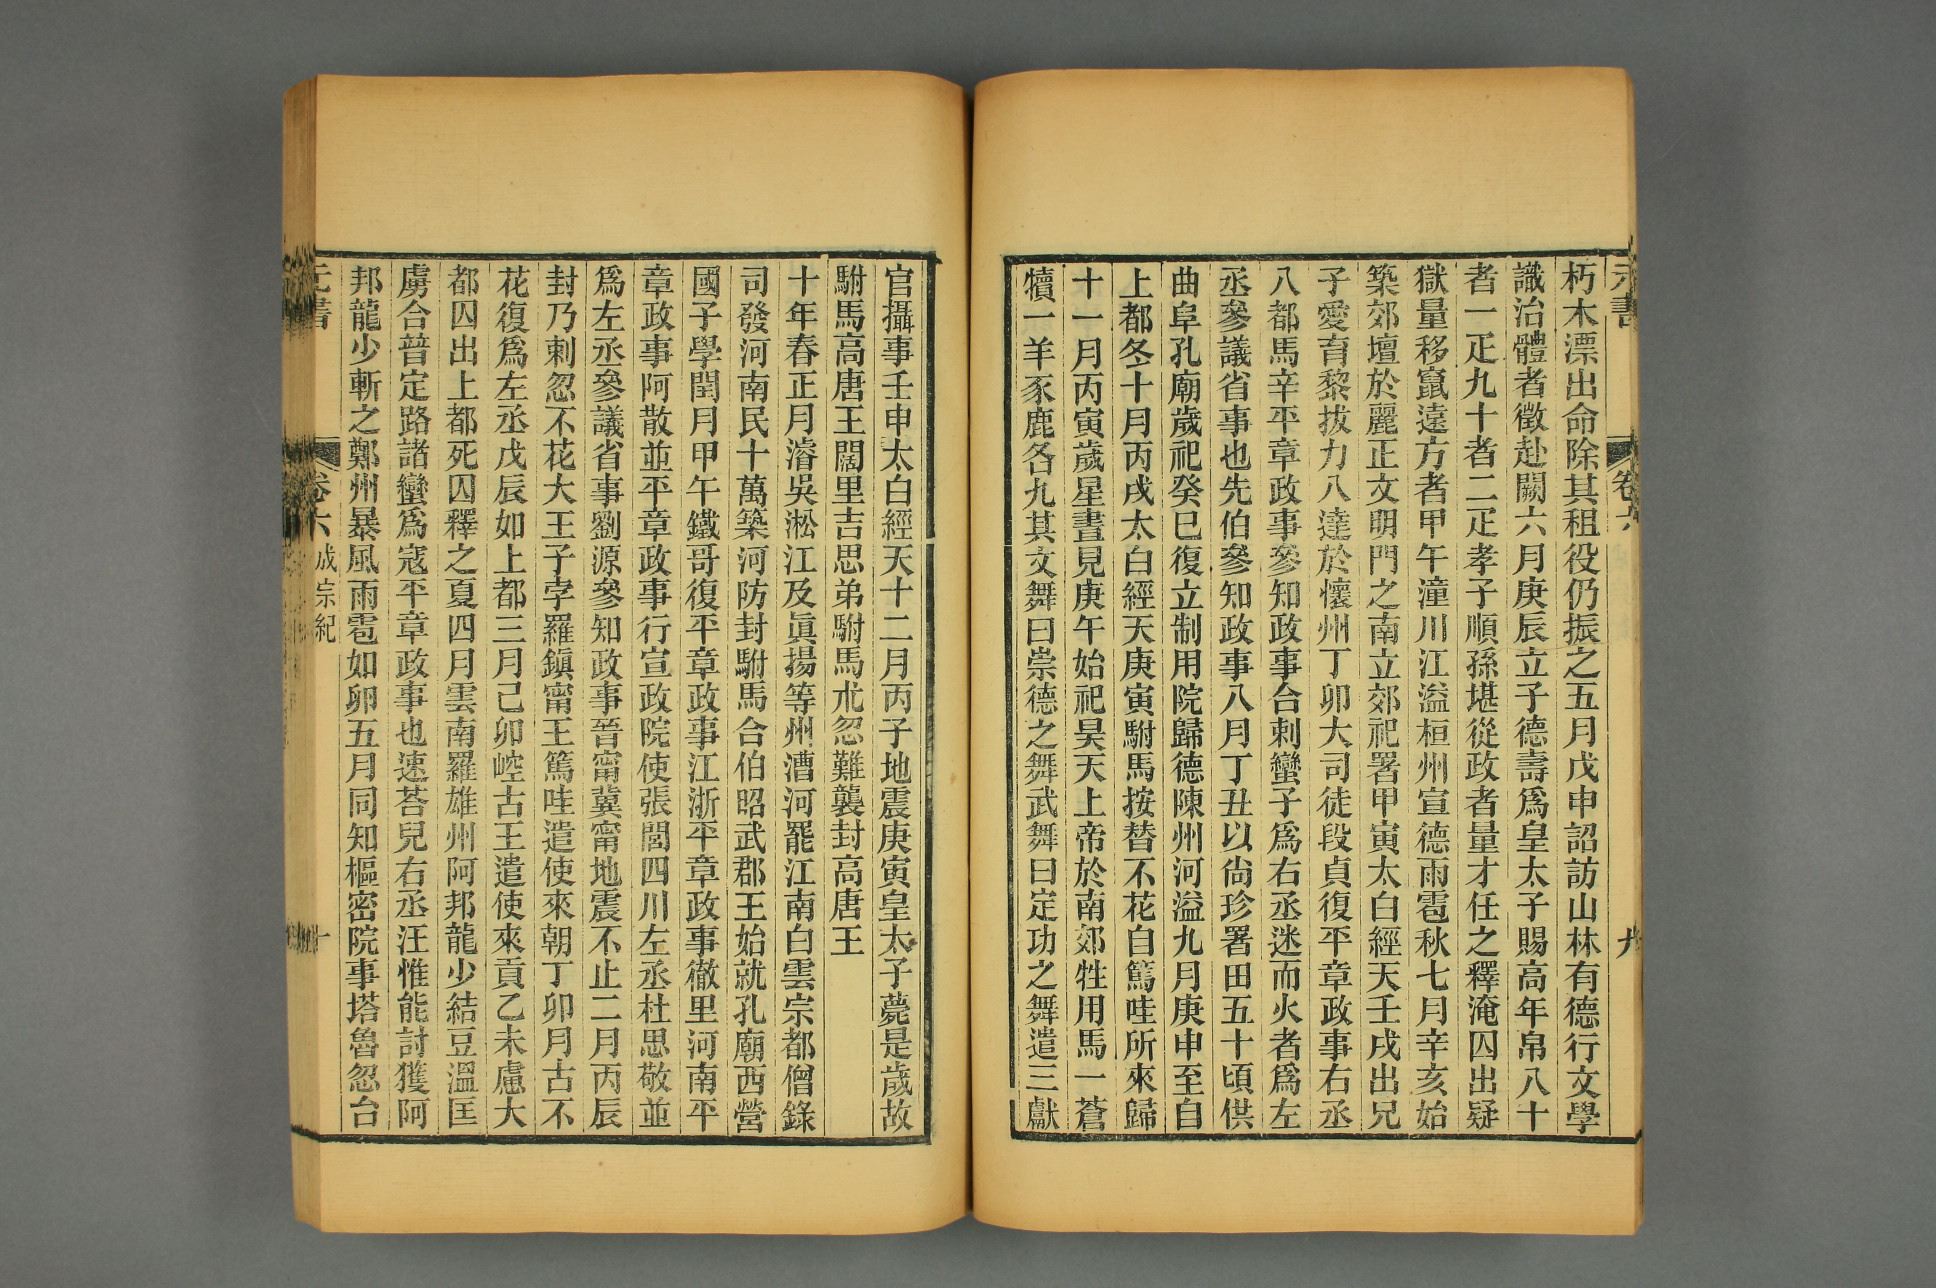 元書
卷六
九
朽木漂出命除其租役仍振之五月戊申詔訪山林有德行文學
識治體者徵赴闕六月庚辰立子德壽爲皇太子賜高年帛八十
者一疋九十者二疋孝子順孫堪從政者量才任之釋淹囚出疑
獄量移竄遠方者甲午潼川江溢桓州宣德雨雹秋七月辛亥始
築郊壇於麗正文明門之南立郊祀署甲寅太白經天壬戌出兄
子愛育黎拔力八達於懷州丁卯大司徒段貞復平章政事右丞
八都馬辛平章政事參知政事合剌蠻子爲右丞迷而火者爲左
丞參議省事也先伯參知政事八月丁丑以尙珍署田五十頃供
曲阜孔廟歲祀癸巳復立制用院歸德陳州河溢九月庚申至自
上都冬十月丙戌太白經天庚寅駙馬按替不花自篤哇所來歸
十一月丙寅歲星晝見庚午始祀昊天上帝於南郊牲用馬一蒼
犢一羊豕鹿各九其文舞曰崇德之舞武舞曰定功之舞遣三獻
官攝事壬申太白經天十二月丙子地震庚寅皇太子薨是歲故
駙馬高唐王闊里吉思弟駙馬朮忽難襲封高唐王
十年春正月濬吳淞江及眞揚等州漕河罷江南白雲宗都僧錄
司發河南民十萬築河防封駙馬合伯昭武郡王始就孔廟西營
國子學閏月甲午鐵哥復平章政事江浙平章政事徹里河南平
章政事阿散並平章政事行宣政院使張閭四川左丞杜思敬並
爲左丞參議省事劉源參知政事晉甯冀甯地震不止二月丙辰
封乃剌忽不花大王子孛羅鎭甯王篤哇遣使來朝丁卯月古不
花復爲左丞戊辰如上都三月己卯崆古王遣使來貢乙未慮大
都囚出上都死囚釋之夏四月雲南羅雄州阿邦龍少結豆溫匡
虜合普定路諸蠻爲寇平章政事也速荅兒右丞汪惟能討獲阿
邦龍少斬之鄭州暴風雨雹如卵五月同知樞密院事塔魯忽台
元書
卷六
成宗紀
十